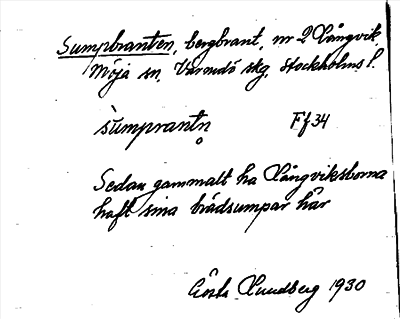 Sumpbranten, bergbrant, nr 2 Långvik,
Möja sn, Värmdö skg, Stockholms l.
sùmprantn̥ Ff34
Sedan gammalt ha Långviksborna
haft sina brädsumpar här
Gösta Lundberg 1930